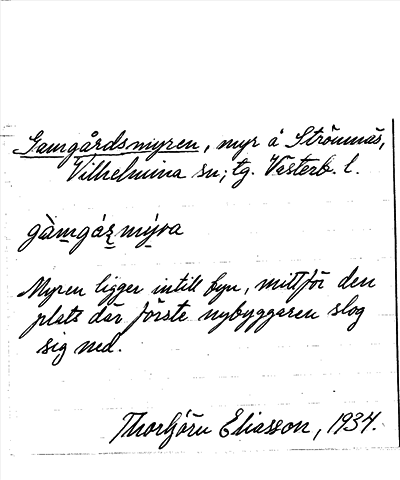 Gamgårdsmyren, myr å Strömnäs,
Vilhelmina sn; tg. Västerb. l.
gàmgármýra
Myren ligger intill byn, mittför den
plats där förste nybyggaren slog
sig ned.
Thorbjörn Eliasson, 1934.